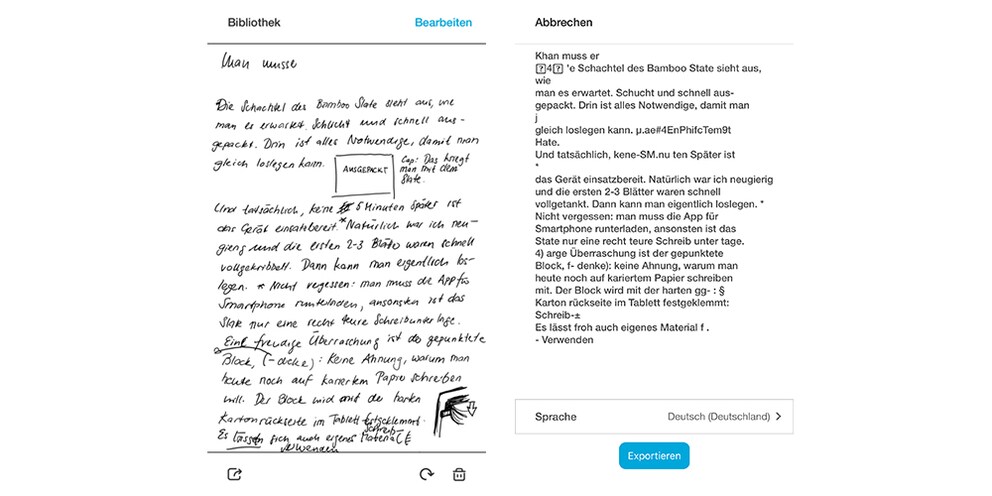 Bibliothek
Bearbeiten
Man musse
Die Schachtel des Bamboo Slate sieht aus, wie
man es erwartet. Schlicht und schnell aus-
gepackt. Drin ist alles Notwendige, damit man
gleich loslegen kann.
AUSGEPACKT
Cap: Das kriegt
man mit dem
Slate.
Und tatsächlich, keine 5 Minuten später ist
das Gerät einsatzbereit. *Natürlich war ich neu-
gierig und die ersten 2-3 Blätter waren schnell
vollgekribbelt. Dann kann man eigentlich los-
legen. * Nicht vergessen: man muss die App fürs
Smartphone runterladen, ansonsten ist das
Slate nur eine recht teure Schreibunterlage.
Eine freudige Überraschung ist der gepunktete
Block, (-dicke): Keine Ahnung, warum man
heute noch auf kariertem Papier schreiben
will. Der Block wird mit der harten
Kartonrückseite im Tablett festgeklemmt.
Es lassen sich auch eigenes Schreib-
Material
verwenden
Abbrechen
Khan muss er
4 'e Schachtel des Bamboo State sieht aus,
wie
man es erwartet. Schucht und schnell aus-
gepackt. Drin ist alles Notwendige, damit man
j
gleich loslegen kann. µ.ae#4EnPhifcTem9t
Hate.
Und tatsächlich, kene-SM.nu ten Später ist
*
das Gerät einsatzbereit. Natürlich war ich neugierig
und die ersten 2-3 Blätter waren schnell
vollgetankt. Dann kann man eigentlich loslegen. *
Nicht vergessen: man muss die App für
Smartphone runterladen, ansonsten ist das
State nur eine recht teure Schreib unter tage.
4) arge Überraschung ist der gepunktete
Block, f- denke): keine Ahnung, warum man
heute noch auf kariertem Papier schreiben
mit. Der Block wird mit der harten gg- : §
Karton rückseite im Tablett festgeklemmt:
Schreib-±
Es lässt froh auch eigenes Material f .
- Verwenden
Sprache
Deutsch (Deutschland)
Exportieren